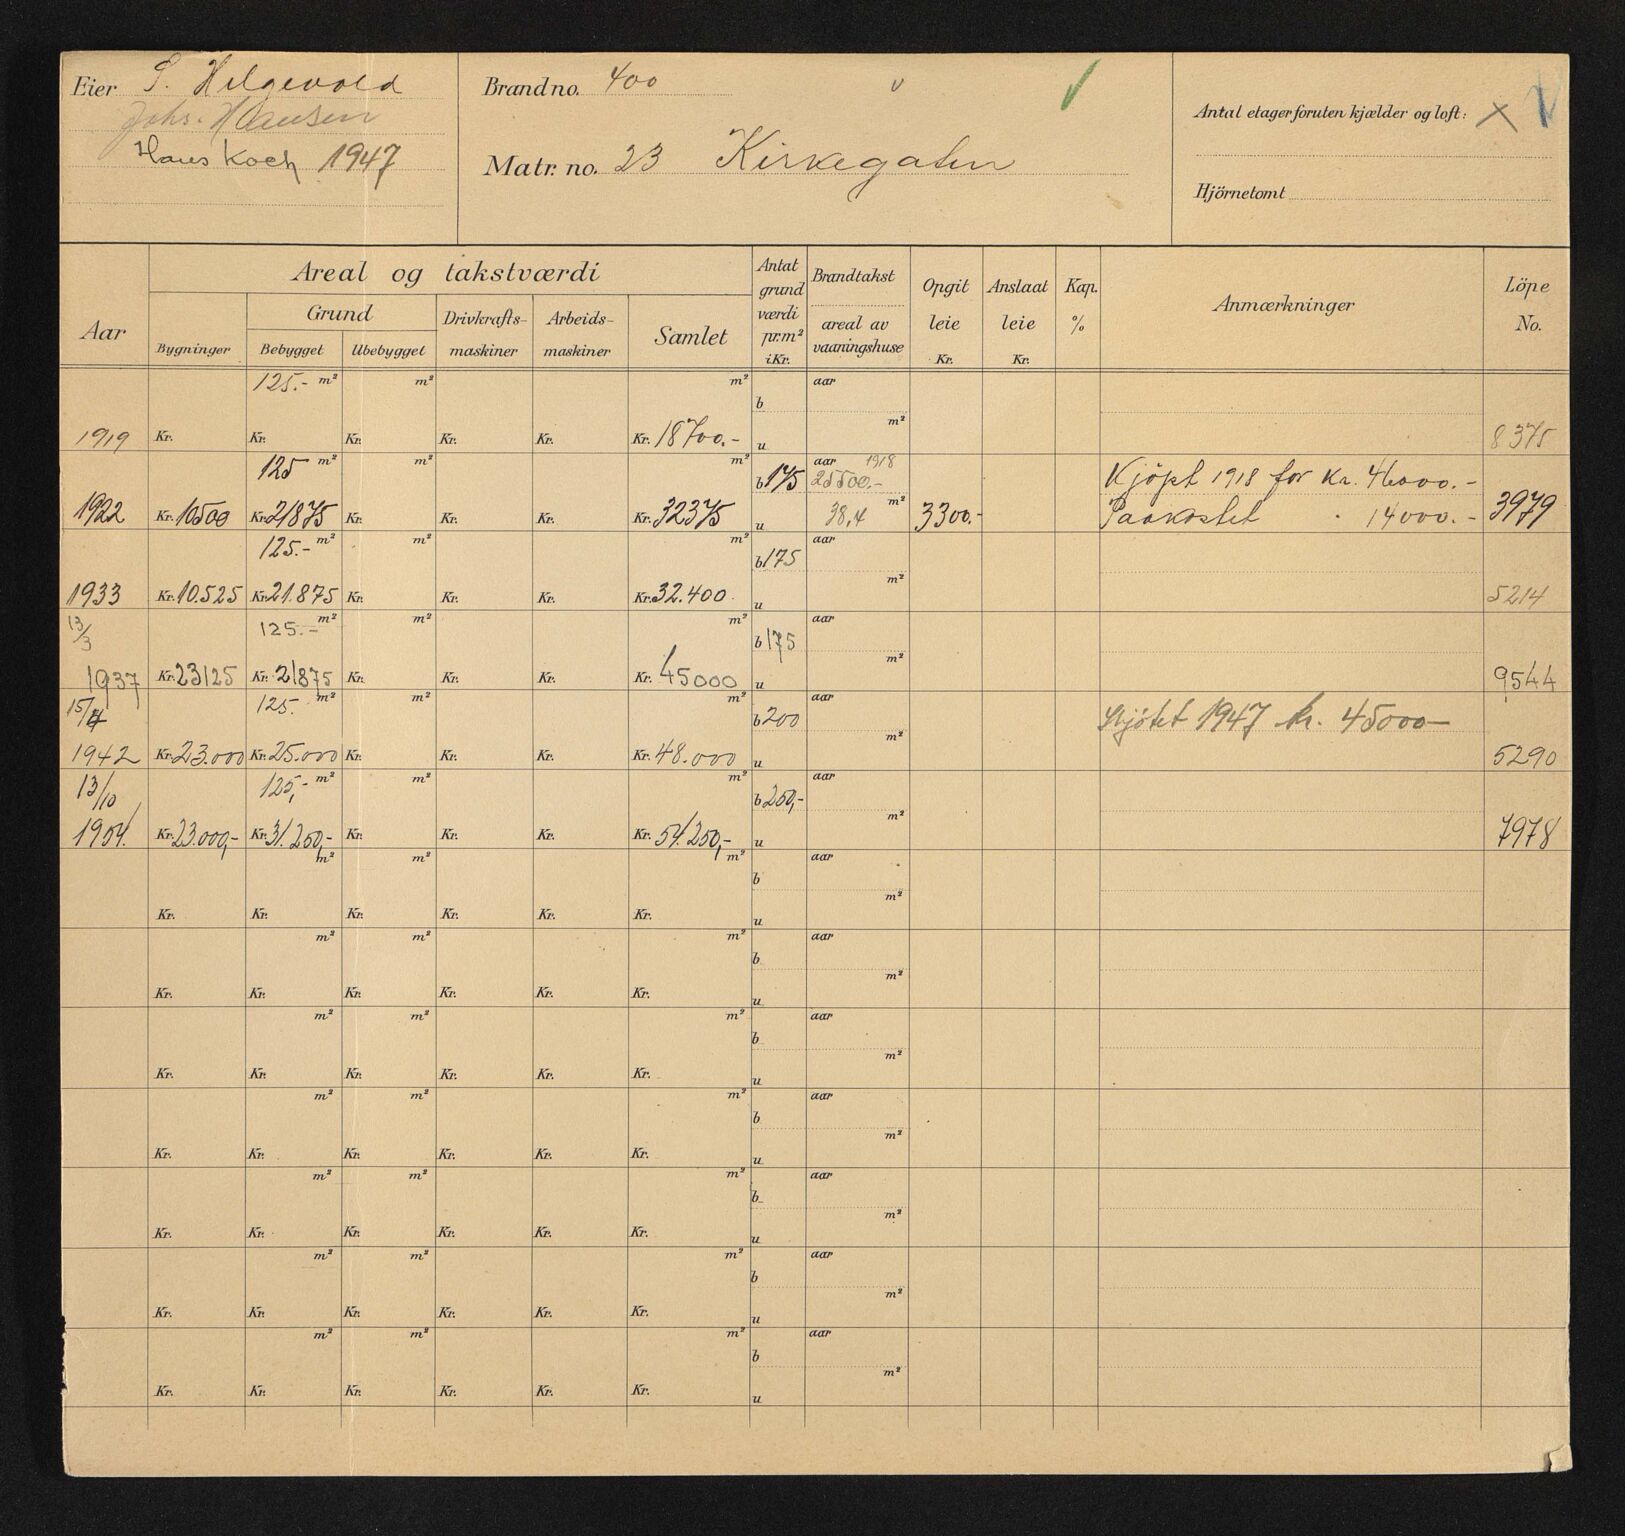 Eier S. Helgevold
Johs. Hansen
Hans Koch 1947
Brand no. 400
Matr. no. 23 Kirkegaten
Antal etager foruten kjælder og loft: X
Hjörnetomt
Areal og takstværdi
Aar Bygninger Grund Bebygget Ubebygget Drivkrafts-maskiner Arbeids-maskiner Samlet
Antat grundværdi pr. m² i Kr.
Brandtakst
areal av vaaningshuse
Opgit leie Kr.
Anslaat leie Kr.
Kap. %
Anmærkninger
Löpe No.
125.- m² m² m² aar
b
m²
1919 Kr. Kr. Kr. Kr. Kr. Kr. 18700.- u 8375
125 m² m² m² b 175 aar 1918 25500.- Kjöpt 1918 for Kr. 46000.-
1922 Kr. 10500 Kr. 21875 Kr. Kr. Kr. Kr. 32375 u 38,4 m² 3300.- Paakostet " 14000.- 3979
125.- m² m² m² b 175 aar
m²
1933 Kr. 10.525 Kr. 21.875 Kr. Kr. Kr. Kr. 32.400 u 5214
13/3 125.- m² m² m² b 175 aar
m²
1937 Kr. 23125 Kr. 21875 Kr. Kr. Kr. Kr. 45000 u 9544
15/4 125. m² m² m² b 200 aar Skjötet 1947 kr. 45000-
m²
1942 Kr. 23.000 Kr. 25.000 Kr. Kr. Kr. Kr. 48.000 u 5290
13/10 125,- m² m² m² b 250,- aar
m²
1954. Kr. 23.000,- Kr. 31.250,- Kr. Kr. Kr. Kr. 54.250,- u 7978
m² m² m² aar
b
m²
Kr. Kr. Kr. Kr. Kr. Kr. u
m² m² m² aar
b
m²
Kr. Kr. Kr. Kr. Kr. Kr. u
m² m² m² aar
b
m²
Kr. Kr. Kr. Kr. Kr. Kr. u
m² m² m² aar
b
m²
Kr. Kr. Kr. Kr. Kr. Kr. u
m² m² m² aar
b
m²
Kr. Kr. Kr. Kr. Kr. Kr. u
m² m² m² aar
b
m²
Kr. Kr. Kr. Kr. Kr. Kr. u
m² m² m² aar
b
m²
Kr. Kr. Kr. Kr. Kr. Kr. u